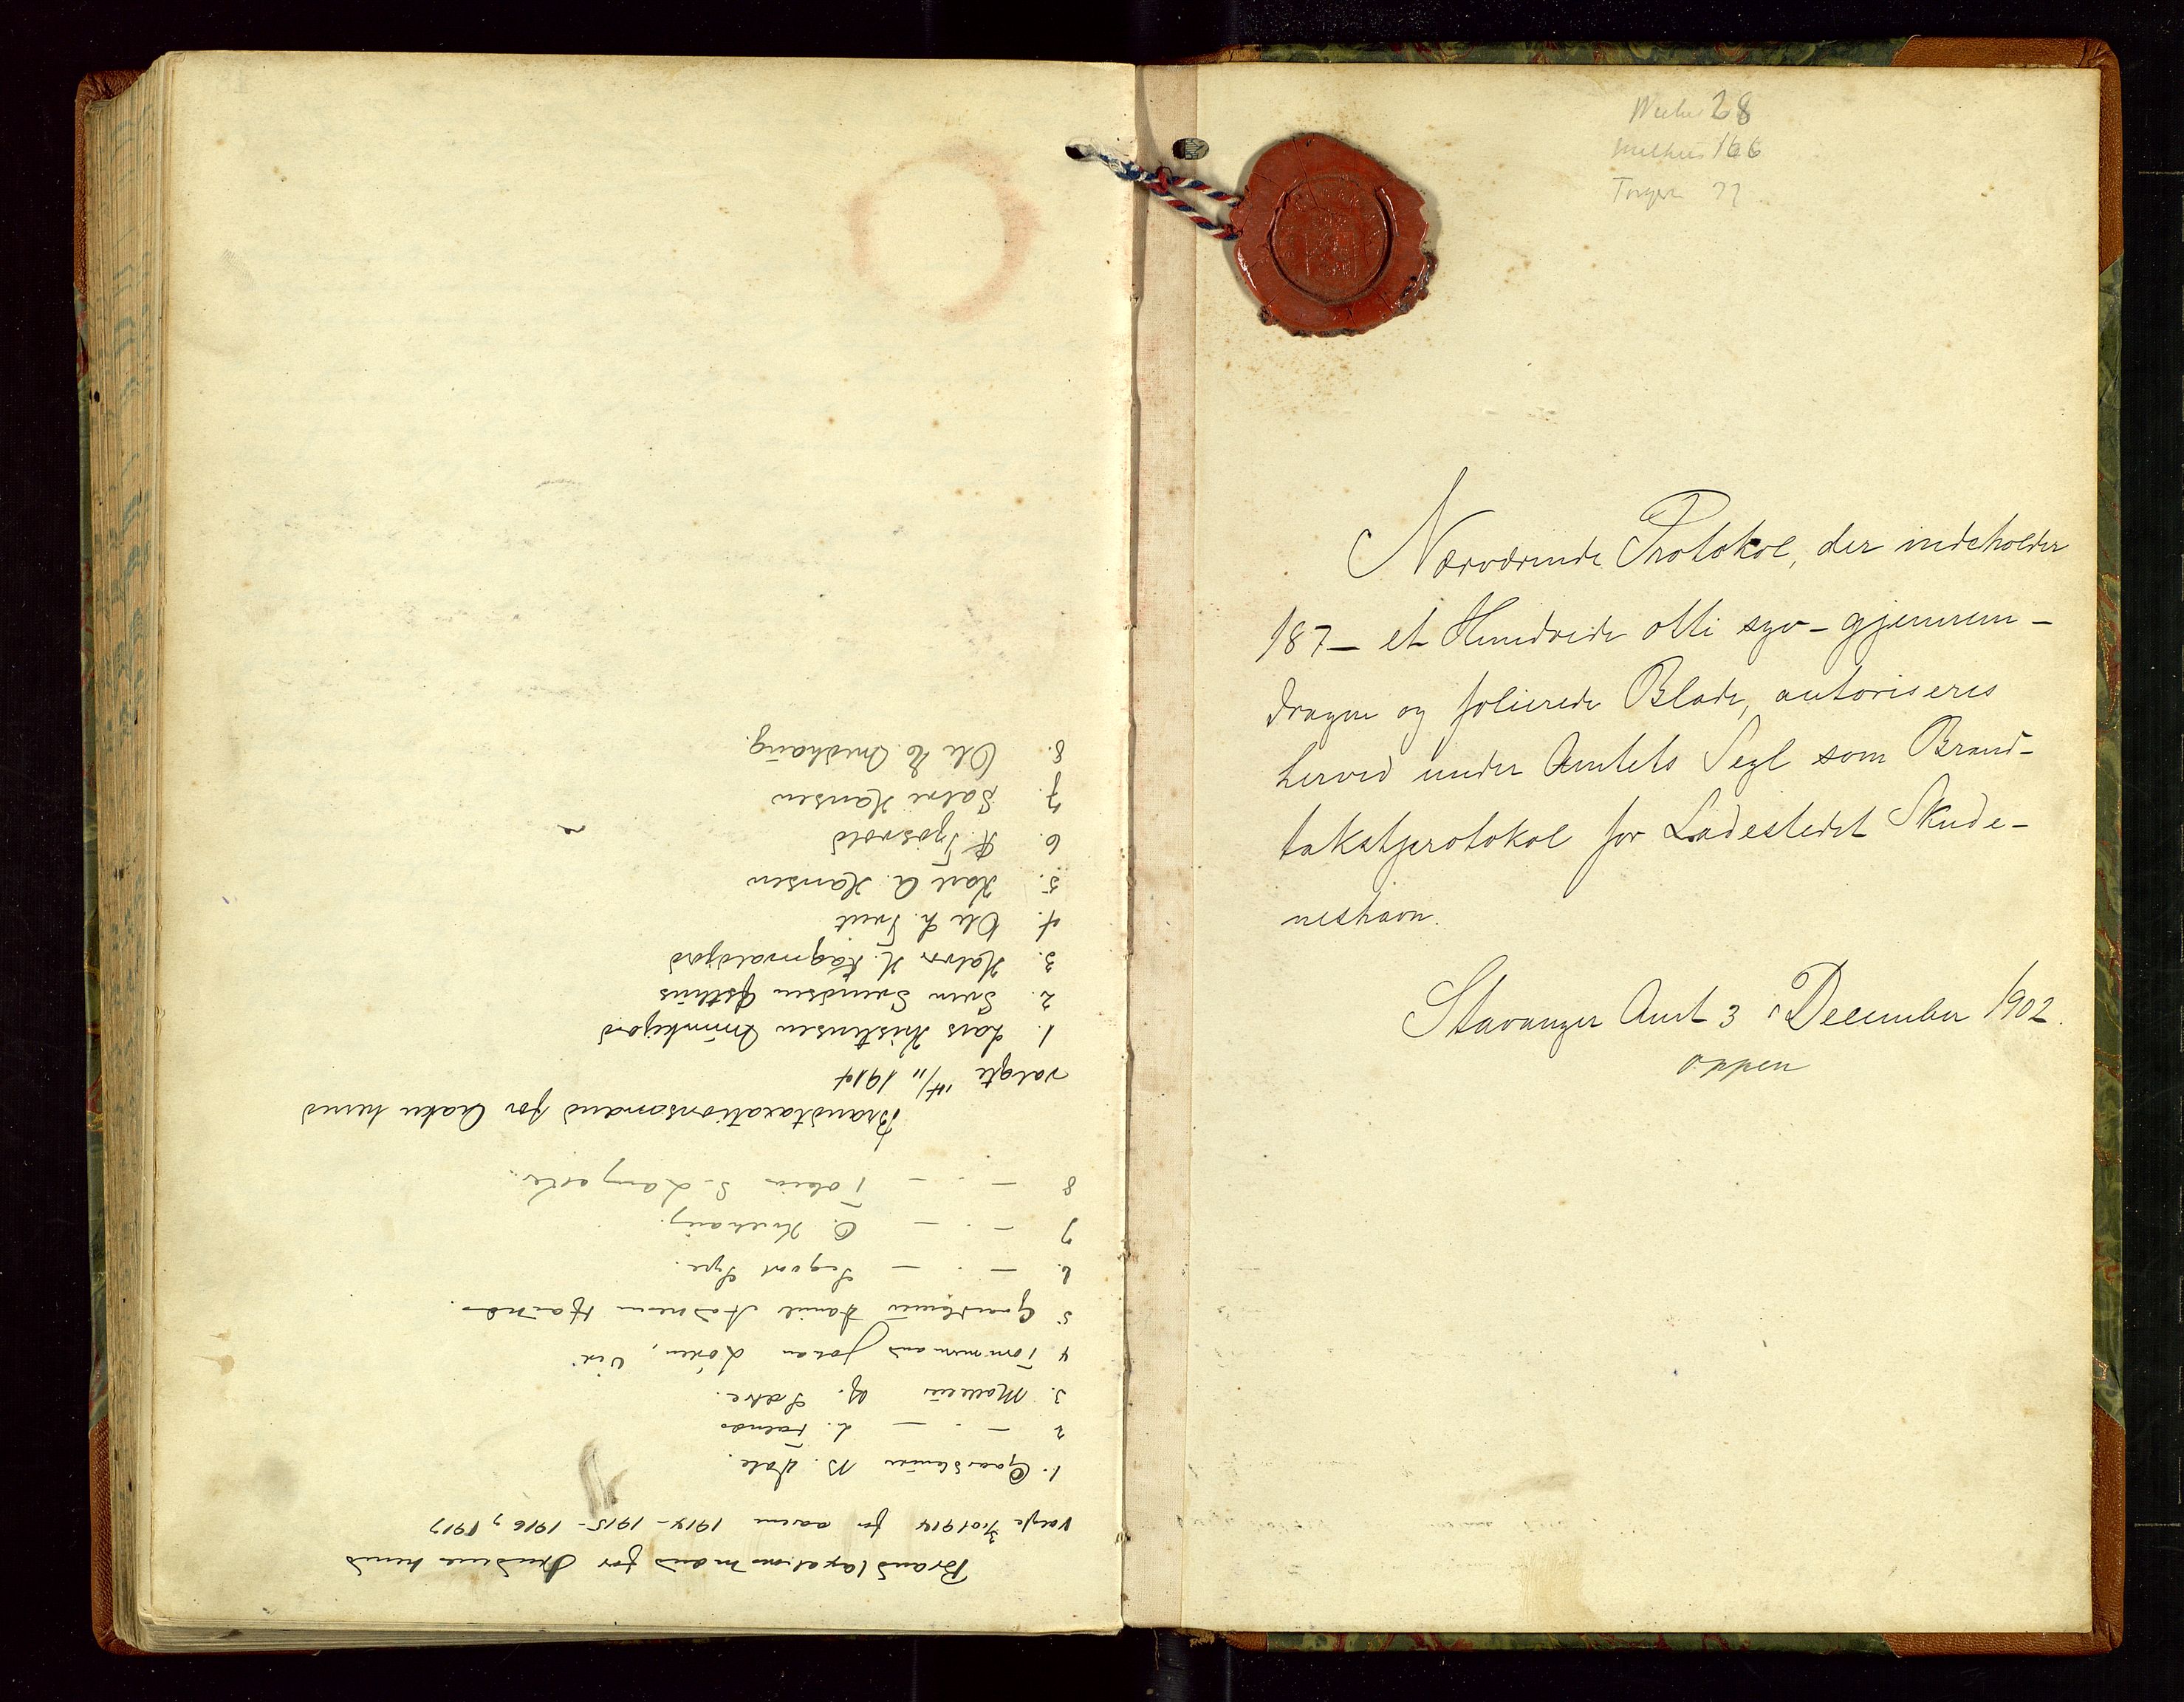 Brandtaxationsmænd for Skudenes herred
Valgte 7/10 1914 for aarene 1914 - 1915 - 1916 & 1917
1. Gaardbruger B. Dale.
2 — . — L. Falnes
3. Mathias Sætre.
4 Tømmermand Johan Lodén, Vik
5 Gaardbruger Daniel Hofnes
6. — . — Sigvart Syre.
7 — . — O. Kvelhaug.
8 — . — Tobias S. Langaaker.
Brandtaxationsmænd for Aakre herred
valgte 14/11 1914
1. Lars Kristensen Munkejord
2. Sven Svendsen Østhus
3. Halvor H. Ragnvaldjord
4. Ole L. Tveit
5. Karl A. Hansen
6. K. Tjøsvold
7. Salve Hansen
8. Ole E. Midhaug.
28
166
Torger 77
Nærværende Protokol, der indeholder
187 — et Hundrede otti syv — gjennem-
dragne og folierede Blade, autoriseres
herved under Amtets Segl som Brand-
takstprotokol for Ladestedet Skude-
neshavn.
Stavanger Amt 3 December 1902.
Oppen